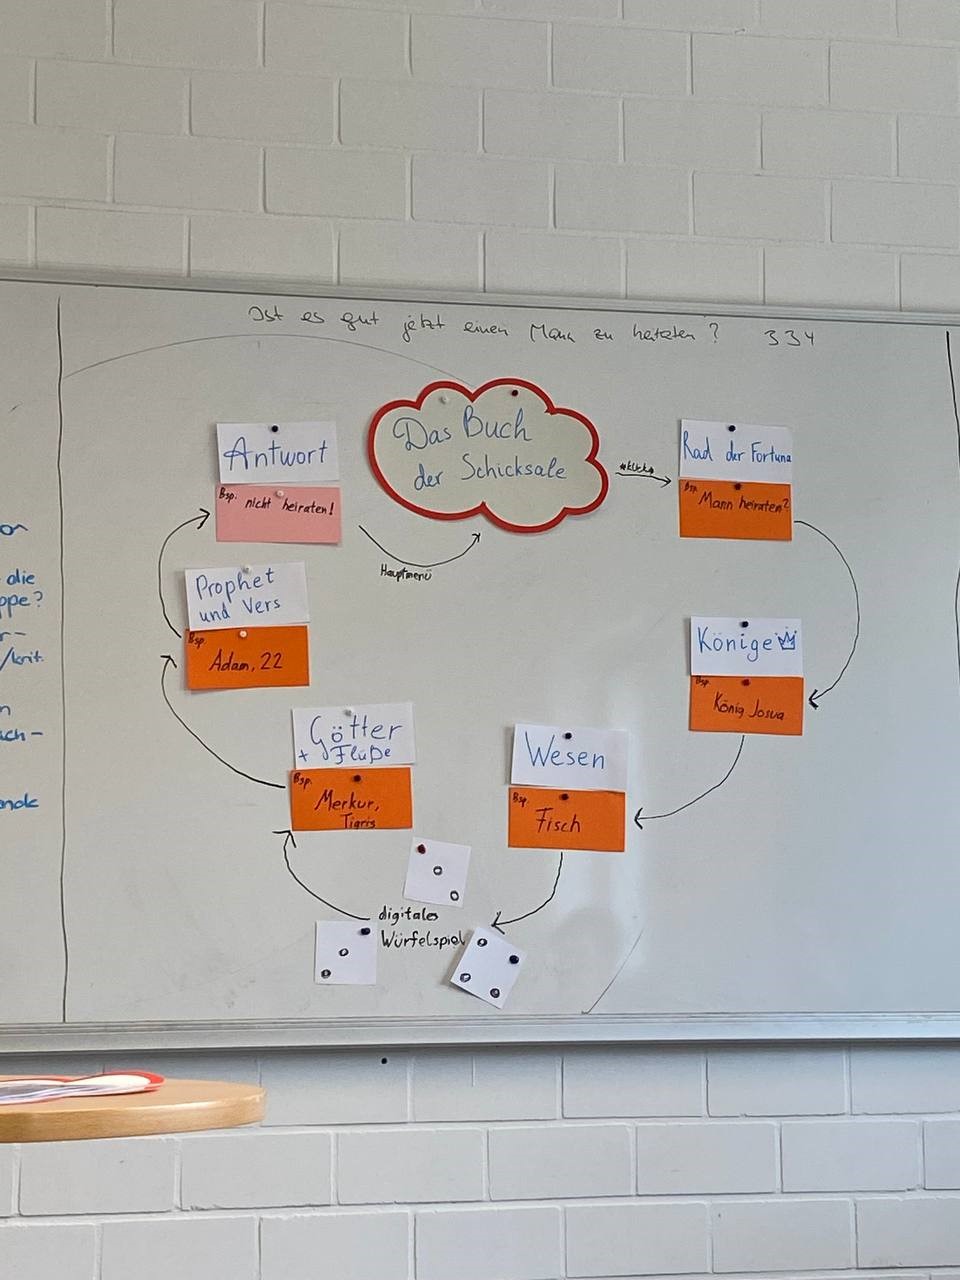 Ist es gut jetzt einen Mann zu heiraten? 334
Das Buch
der Schicksale
*klick*
Rad der Fortuna
Bsp.
Mann heiraten?
Könige
Bsp.
König Josua
Wesen
Bsp.
Fisch
digitales
Würfelspiel
Götter
+ Flüße
Bsp.
Merkur,
Tigris
Prophet
und Vers
Bsp.
Adam, 22
Antwort
Bsp. nicht heiraten!
Hauptmenü
die
ppe?
/krit.